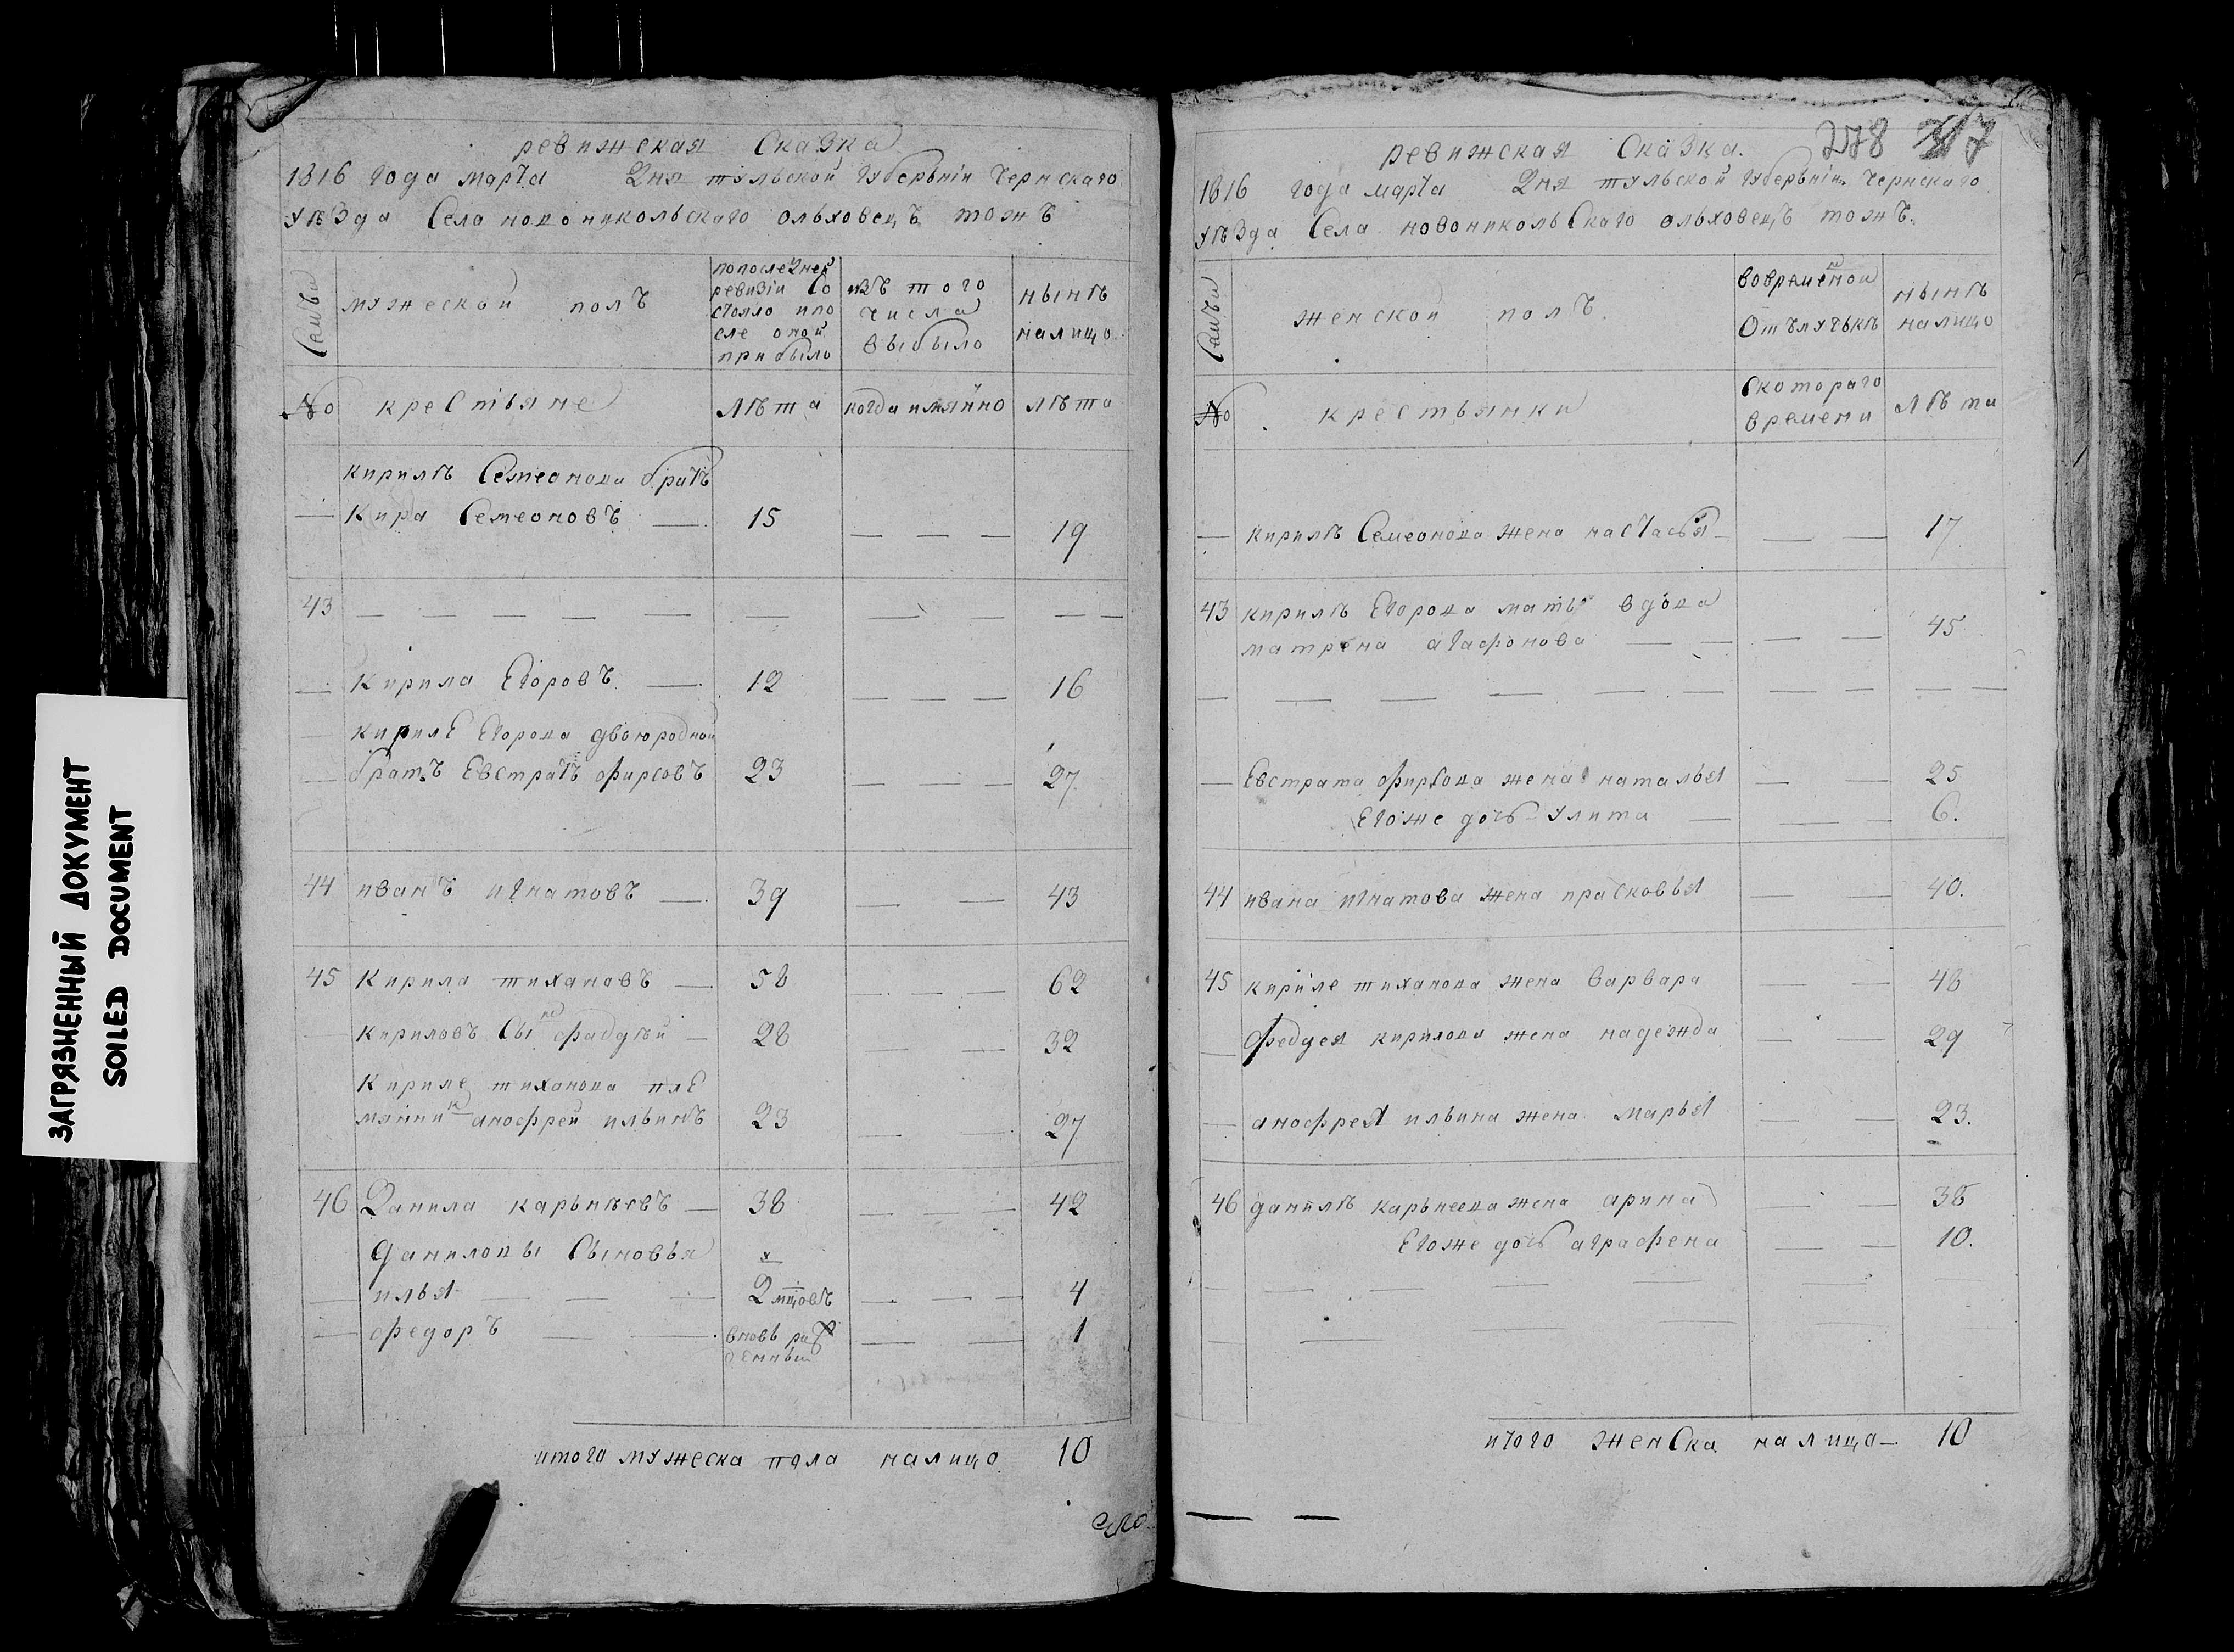 ревижская Сказка
1816 года марта дня тульской губернiи Чернскаго
уѣзда Села новоникольскаго ольховецъ тожъ
Семьи
мужеской полъ
попоследней
ревизiи Со
стояло ипо
сле оной
прибыло
изъ того
числа
выбыло
нынѣ
налицо
№ крестьяне лѣта когда имянно лѣта
кирилѣ Семеонова братъ
— Кира Семеоновъ — 15 — — — 19
43 — — — — — — — — — —
— Кирила Егоровъ — 12 — — — 16
кириле Егорова двоюродной
— братъ Евстратъ фирсовъ 23 — — — 27
44 иванъ игнатовъ — 39 — — 43
45 Кирила тихановъ — 58 — — — 62
— кириловъ Сынъ фадѣй — 28 — — 32
Кириле тиханова пле
мянникъ анофрей ильинъ 23 — — 27
46 Данила карьпѣевъ — 38 — — — 42
Даниловы Сыновья
— илья — — — 2 мцовъ — — — 4
— федоръ — — вновь раж — — 1
денный
итого мужеска пола налицо 10
278 317
ревижская Сказка.
1816 года марта дня тульской губернiи Чернскаго
уѣзда Села новоникольскаго ольховецъ тожъ.
Семьи
женской полъ.
вовременной
отълучькѣ
нынѣ
налицо
№ крестьянки
Скотораго
времени
лѣта
— кирилѣ Семеонова жена настасья — — — 17
43 кирилѣ Егорова мать вдова
матрена агафонова — — — — 45
— — — — — — — — — —
— Евстрата фирсова жена наталья — — 25
Егоже дочь улита — — — 6.
44 ивана игнатова жена прасковья — — 40.
45 кириле тиханова жена варвара — — 48
— федея кирилова жена надежда — — 29
— анофрея ильина жена марья — — 23.
46 данилѣ карьпеева жена арина — — 38
Егоже дочь аграфена — — 10.
итого женска налицо — 10
ЗАГРЯЗНЕННЫЙ ДОКУМЕНТ
SOILED DOCUMENT